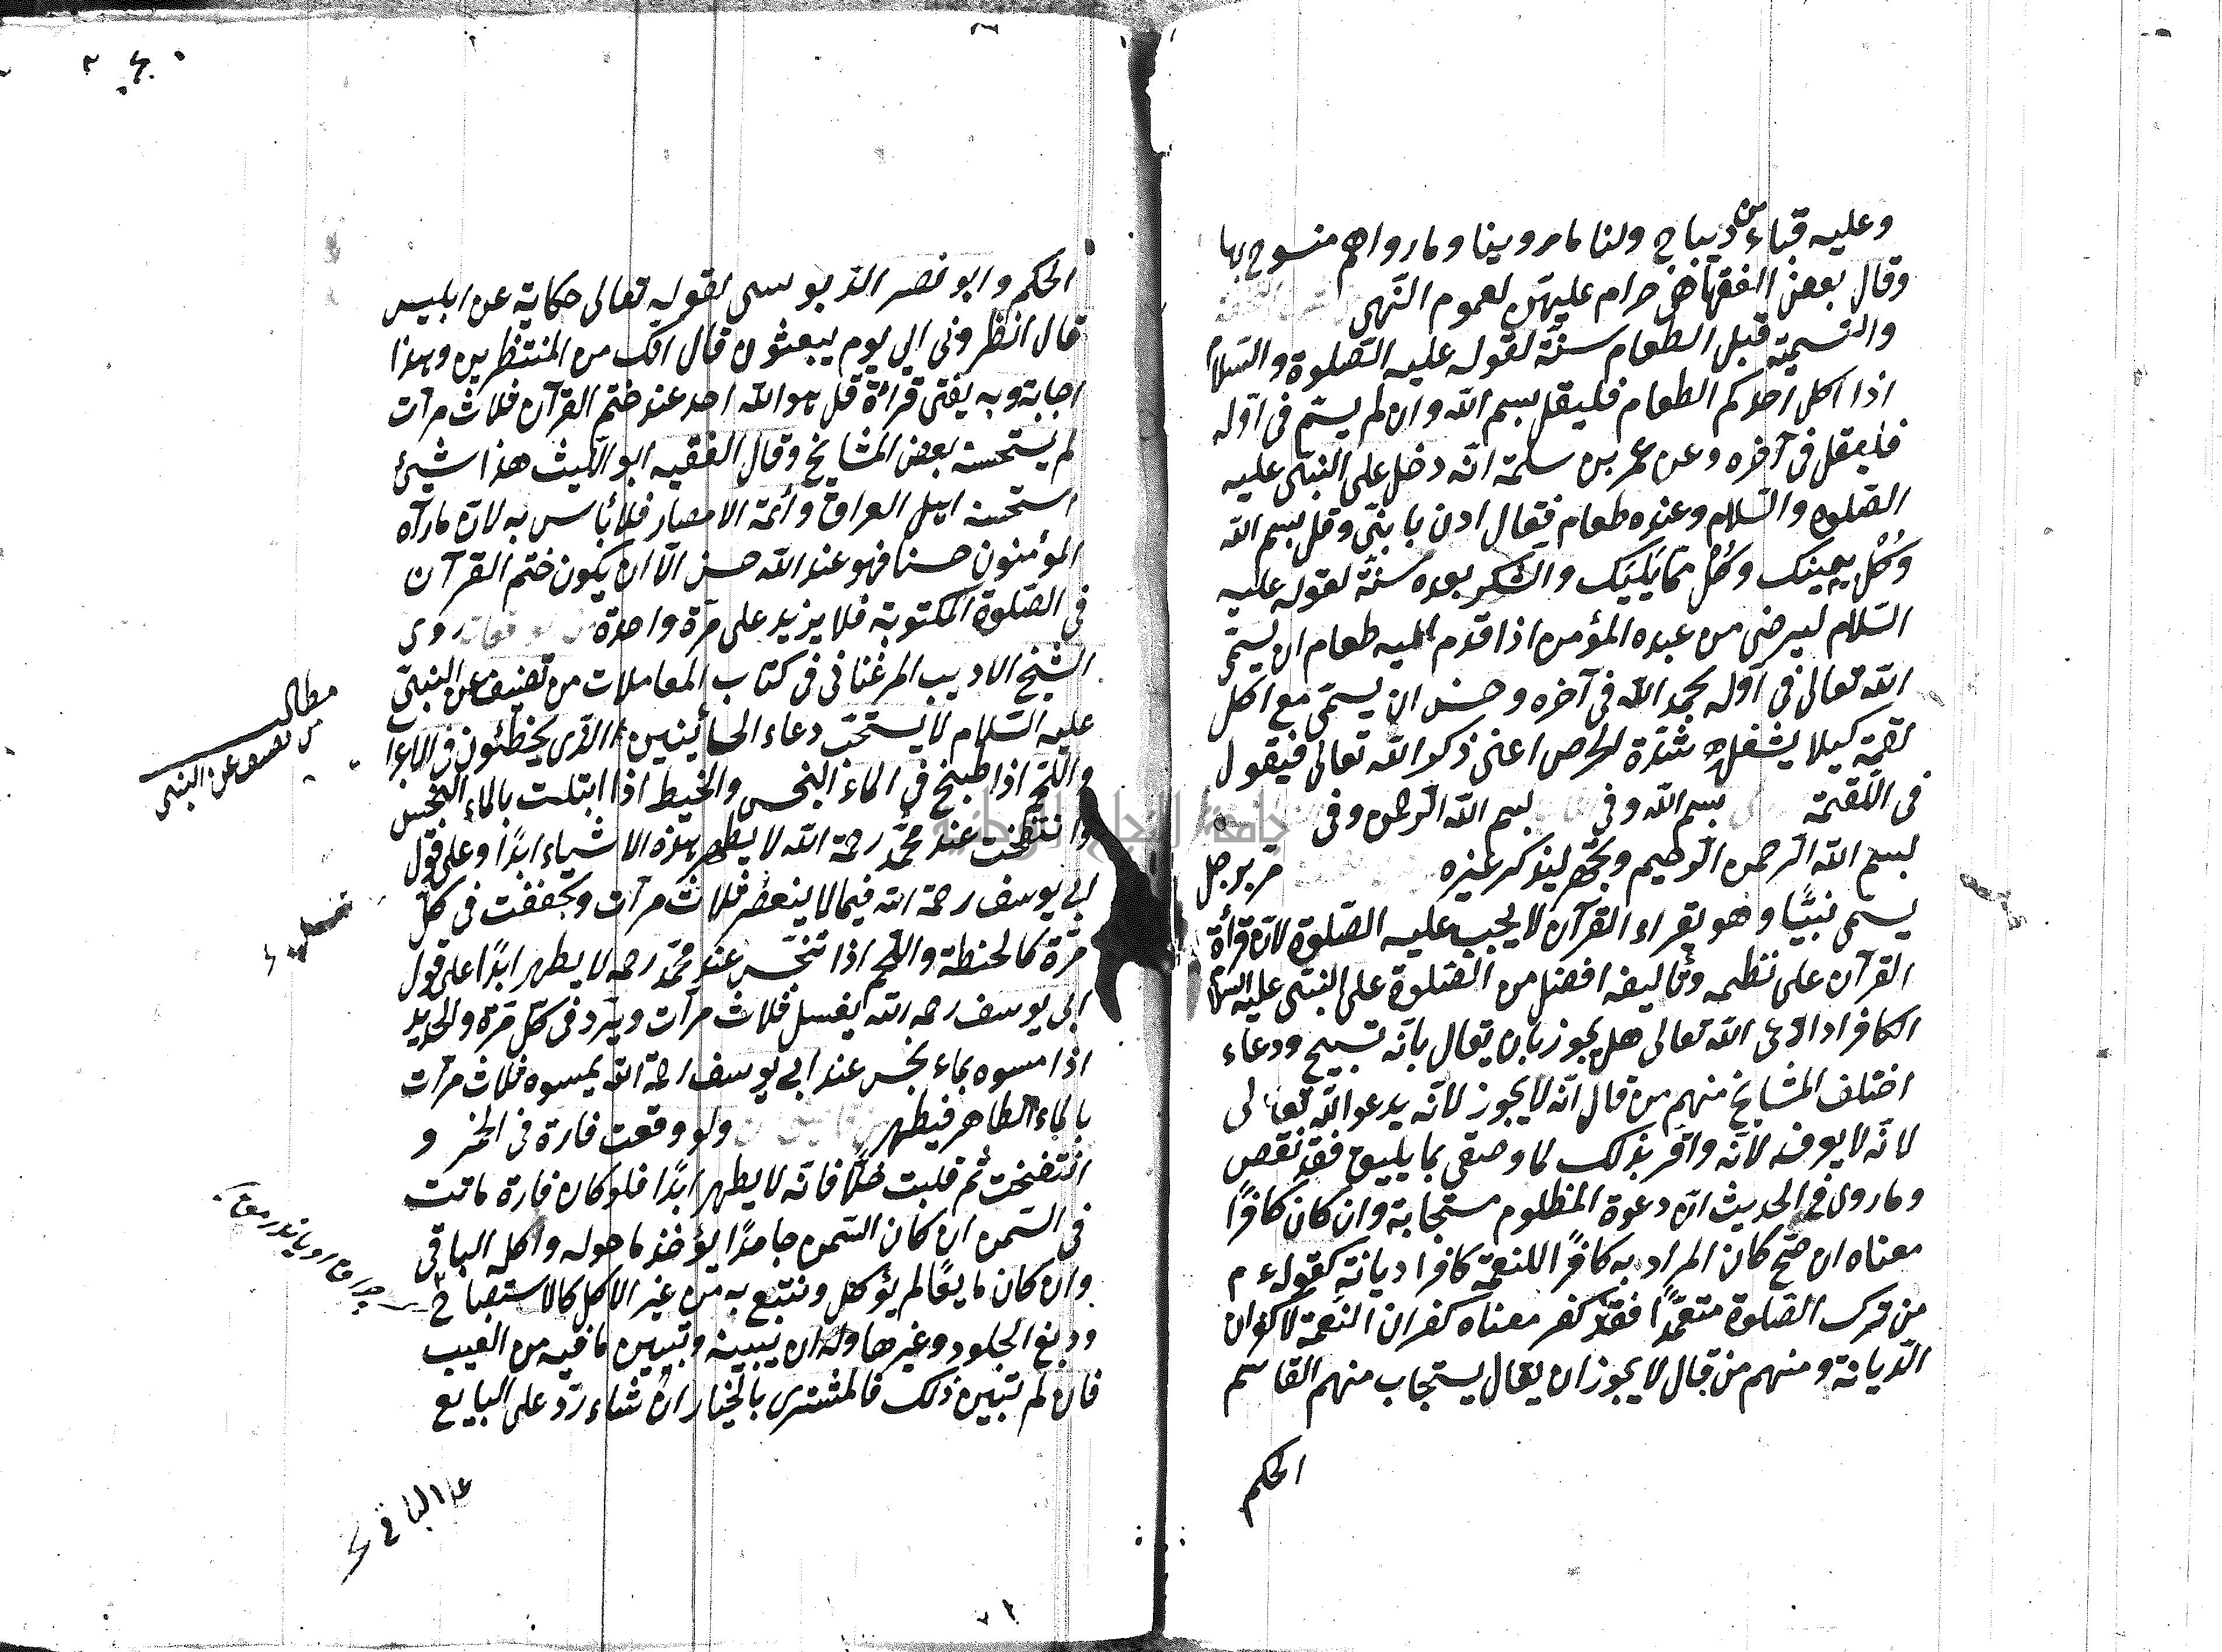 وعليه قباء من ديباج ولنا ما روينا وما رواهم منسوخ بها
وقال بعض الفقهاء هى حرام عليهن لعموم النهى
والتسمية قبل الطعام سنة لقوله عليه الصلوة والسلام
اذا اكل احدكم الطعام فليقل بسم الله وان لم يسم فى اوله
فليقل فى آخره وعن عمر بن سلمة انه دخل على النبى عليه
الصلوه والسلام وعنده طعام فقال ادن يا بنى وقل بسم الله
وكُل بيمينك وكُل مما يليك والشكر بعده سنة لقوله عليه
السلام ليرضى من عبده المؤمن اذا قدم اليه طعام ان يسمى
الله تعالى فى اوله بحمد الله فى آخره وحسن ان يسمى مع اكل
لقمة كيلا يشغله شدة الحرص اعنى ذكر الله تعالى فيقول
فى اللقمة بسم الله وفى بسم الله الرحمن وفى
بسم الله الرحمن الرحيم ويجهر ليذكر غيره مر برجل
يسمى نبيًا وهو يقراء القرآن لا يجب عليه الصلوة لان قرأة
القرآن على نظمه وتاليفه افضل من الصلوة على النبى عليه السلام
الكافر اذا دعى الله تعالى هل يجوز بان يقال بانه تسبيح ودعاء
اختلف المشايخ منهم من قال انه لا يجوز لانه يدعو الله تعالى
لانه لا يوفه لانه واقر بذلك لما وصفى بما يليق فقد نقص
وما روى فى الحديث ان دعوة المظلوم مستجابة وان كان كافرًا
معناه ان صح كان المراد به كافرًا للنعمة كافرا ديانة كقوله ع م
من ترك الصلوة متعمدًا فقد كفر معناه كفران النعمة لا كفران
الديانة ومنهم من قال لا يجوز ان يقال يستجاب منهم القاسم
الحكم
الحكم وابو نصر الدبوسى لقوله تعالى حكاية عن ابليس
قال انظرونى الى يوم يبعثون قال انك من المنتظرين وهذا
اجابة وبه يفتى قرائة قل هو الله احد عند ختم القرآن ثلاث مرآت
لم يستحسنه بعض المشايخ وقال الفقيه ابو الليث هذا شيئ
استحسنه اهل العراق وأئمة الامصار فلا بأس به لان ما رآه
المؤمنون حسنا فهو عند الله حسن الا ان يكون ختم القرآن
فى الصلوة المكتوبة فلا يزيد على مرة واحدة روى
الشيخ الاديب المرغنانى فى كتاب المعاملات من تصنيف عن النبى
عليه السلام لا يستحب دعاء الحائنين الذى يخطئون فى الاعراب
واللحم اذا طبخ فى الماء النجس والخيط اذا ابتلت بالماء النجس
وانتفخت عند محمد رحمة الله لا يطهر بهذه الاشياء ابدًا وعلى قول
ابى يوسف رحمة الله فيما لا ينعصر ثلاث مرآت ويجففت فى كل
مرة كالحنطة واللحم اذا تنجس عند محمد رحمه لا يطهر ابدًا على قول
ابى يوسف رحمه الله يغسل ثلاث مرآت ويبرد فى كل مرة والحديد
اذا مسوه بماء نجس عند ابى يوسف رحمة الله يمسوه ثلاث مرآت
بالماء الطاهر فيطهر ولو وقعت فارة فى الخمر و
انتفخت ثم قلبت خلًا فانه لا يطهر ابدًا فلو كان فارة ماتت
فى السمن ان كان السمن جامدًا يؤخذ ما حوله واكل الباقى
وان كان مايعًا لم يؤكل وننتبع به من غير الاكل كالاستصباح
ودبغ الجلود وغيرها وله ان يبيه وتبيين ما فيه من العيب
فان لم تبيين ذلك فالمشترى بالخيار ان شاء رد على البايع
مطالب
من تصنيف عن النبى